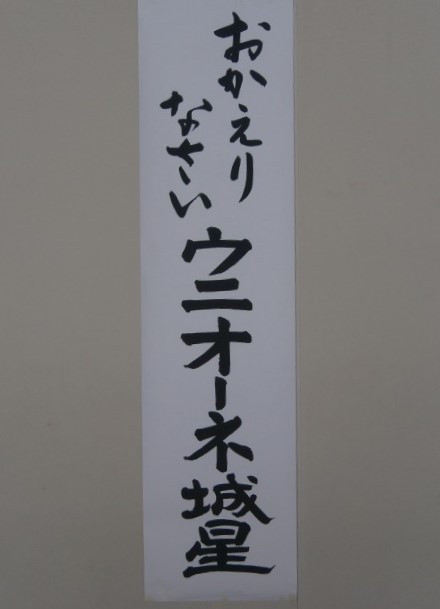 おかえり
なさい
ウニオーネ城星